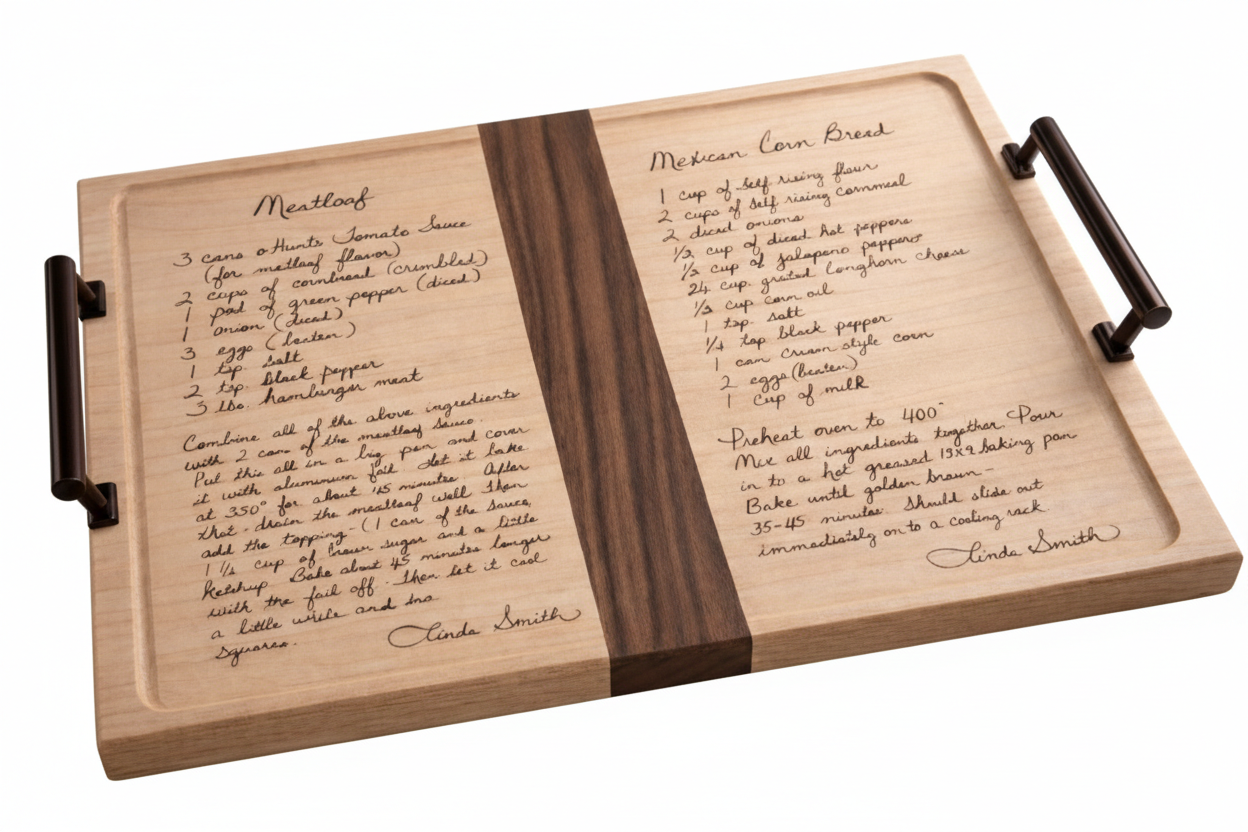 Meatloaf
3 cans o Hunts Tomato Sauce
(for meatloaf flavor)
2 cups of cornbread (crumbled)
1 pod of green pepper (diced)
1 onion (diced)
3 eggs (beaten)
1 tsp. salt
2 tsp. black pepper
3 lbs. hamburger meat
Combine all of the above ingredients
with 2 cans of the meatloaf sauce.
Put this all in a big pan and cover
it with aluminum foil. Let it bake
at 350° for about 45 minutes. After
that drain the meatloaf well. Then
add the topping - (1 can of the sauce,
1 1/2 cup of brown sugar and a little
ketchup. Bake about 45 minutes longer
with the foil off. Then let it cool
a little while and
squares.
Linda Smith
Mexican Corn Bread
1 cup of self rising flour
2 cups of self rising cornmeal
2 diced onions
1/2 cup of diced hot peppers
1/2 cup of jalapeno peppers
24 cup. grated longhorn cheese
1/2 cup corn oil
1 tsp. salt
1/4 tsp black pepper
1 can cream style corn
2 eggs (beaten)
1 cup of milk
Preheat oven to 400°
Mix all ingredients together. Pour
in to a hot greased 13x9 baking pan
Bake until golden brown -
35-45 minutes. Should slide out
immediately on to a cooling rack.
Linda Smith